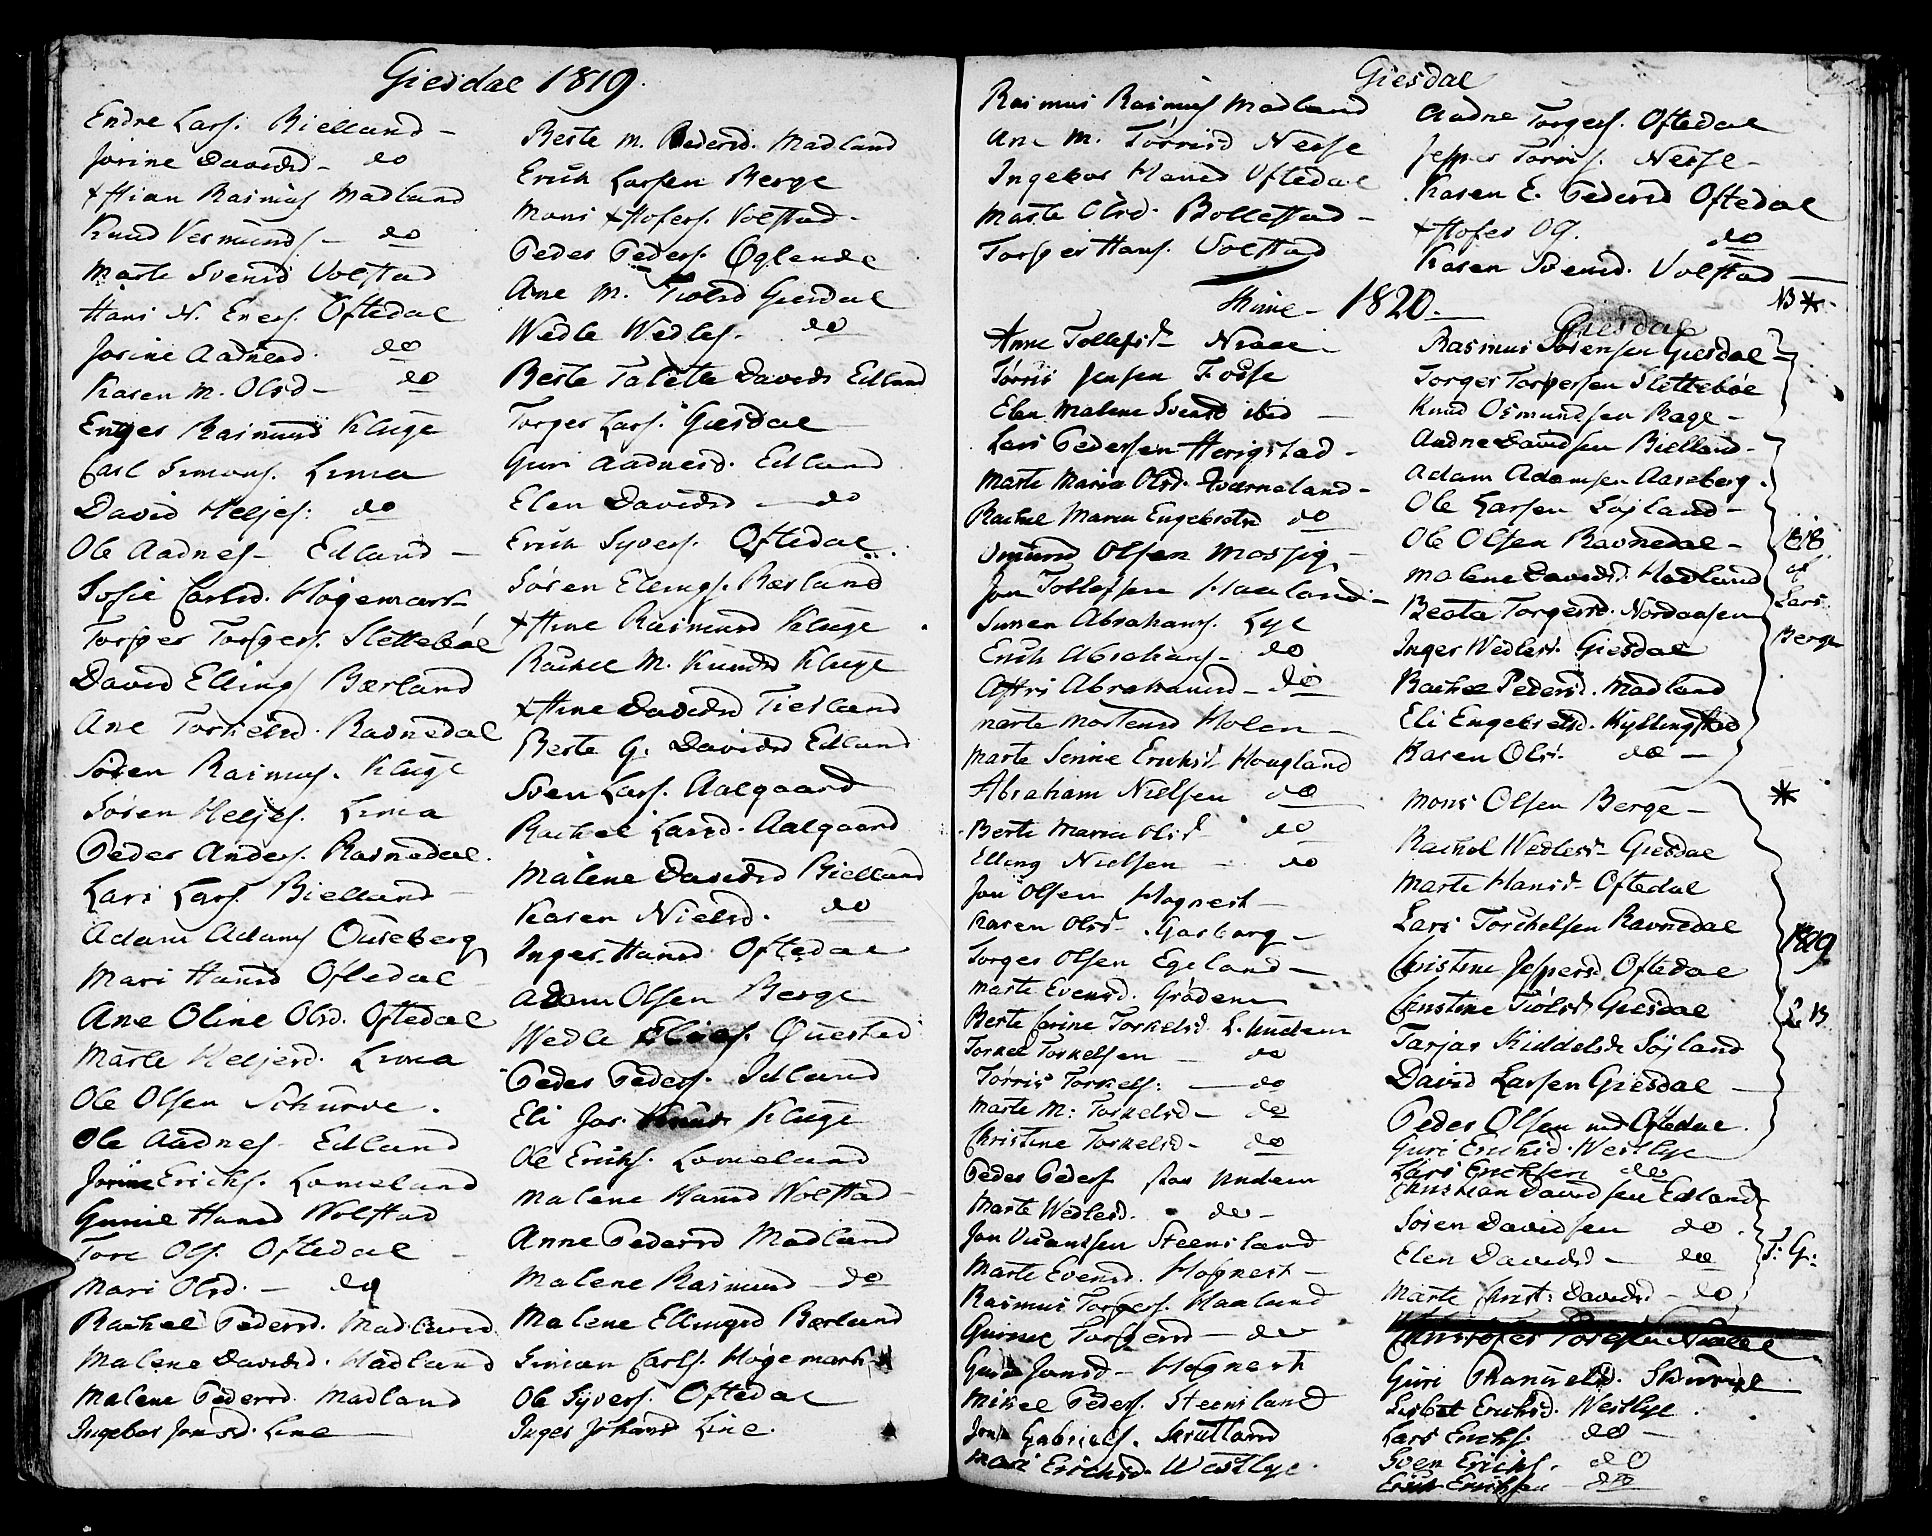 Giesdal 1819.
Endre Lars. Bielland -
Jorine Davidsd - do
Rasmus Madland
Knud Vermunds - do
Marte Svensd Volstad
Hans N. Eners. Oftedal
Jorine Aadnesd. do
Karen M. Olsd - do
Rasmusd Kluge
Carl Simons. Lima
David Heljes. do
Ole Aadnes - Edland -
Sofie Carlsd. Høgemark
Torger Torgers. Slettebøe
David Ellings Bærland
Ane Torkelsd. Ravnedal
Søren Rasmus. Kluge
Søren Heljes. Lima
Peder Anders. Ravnedal.
Lars Lars. Bielland -
Adam Adams Ouseberg
Mari Hansd Oftedal -
Ane Oline Olsd. Oftedal
Marte Heljesd. Lima
Ole Olsen Schurve.
Ole Aadnes - Edland
Erichs. Lomeland
Gunil Hansd Wolstad
Tore Ols. Oftedal -
Mari Olsd. - do
Rachel Pedersd. Madland
Malene Davidsd. Madland
Malene Pedersd. Madland
Ingebor Jonsd. Line -
Berte M. Pedersd. Madland
Erich Larsen Berge
Mons Volstad -
Peder Peders. Øglende
Ane M. Giesdal
Wedle Wedles. do
Berte Talete Davids Edland
Torger Lars. Giesdal
Guri Aadnesd. Edland
Elen Davidsd - do
Erich Syvers. Oftedal.
Søren Ellings. Bærland
Rasmusd Kluge
Rachel M. Knudsd Kluge
Davidsd Tiesland
Berte G. Davidsd Edland
Sven Lars. Aalgaard
Rachel Larsd. Aalgaard
Malene Davidsd Bielland
Karen Nielsd. do
Inger Hansd Oftedal
Adam Olsen Berge
Wedle Questad
Peder Peders. Idland
Eli Kluge
Ole Erichs. Lomeland
Malene Hansd Wolstad -
Anne Pedersd Madland
Malene Rasmusd - do
Malene Ellingsd Bærland
Simon Carls. Høgemark
Ole Syvers. Oftedal
Inger Johansd Line.
Giesdal
Rasmus Rasmus Madland
Ane M. Tørrisd Nesse
Ingebor Hansd Oftedal
Marte Olsd. Bollestad -
Torger Hans. Volstad
Aadne Torgers. Oftedal
Jesper Tørris. Nesse -
Karen E. Pedersd Oftedal
do
Karen Svensd. Volstad -
Thime - 1820. -
NB *
Anne Tollefsd - Niaae -
Tørris Jensen Fosse
Elen Malene Svensd ibid -
Lars Pedersen Herigstad -
Marte Maria Olsd. Qværneland -
Rachel Maria Engebretsd do
Omund Olsen Mossig -
Jon Tollefsen Haaland -
Simen Abrahams. Lye
Erich Abrahams - do
Abrahamsd - do
Marte Mortensd Holen -
Marte Serine Erichsd. Hougland
Abraham Nielsen do
Berte Maria Olsd - do
Elling Nielsen - do
Jon Olsen Hognest -
Karen Olsd. Garborg -
Torger Olsen Egeland -
Marte Evensd. Grødem
Berte Carine Torkelsd. L. Undem
Torkel Torkelsen - do
Tørris Torkels: - do
Marte M: Torkelsd - do
Christine Torkelsd - do
Peder Peders stor Undem
Marte Wedlesd. do -
Jon Steensland
Marte Evensd. Hognest -
Rasmus Torgers. Haaland
Torgersd - do
Jonsd - Hognest
Mikel Peders. Steensland
Gabriels. Skrutland
Mari Erichsd. Westlye.
Giesdal
Rasmus Sørensen Giesdal -
Torger Torgersen Slettebøe
Knud Osmundsen Rage -
Aadne Davidsen Bielland -
Adam Adamsen Aaseberg.
Ole Larsen Søyland -
Ole Olsen Ravnedal -
Malene Davidsd. Madland
Beata Torgersd. Nordaasen
Inger Wedlesd. Giesdal
Rachel Pedersd. Madland
Eli Engebretsd. Kyllingstad
Karen Olsd. do -
1818
af
Lars
Berge
Mons Olsen Berge -
Rachel Wedlesd - Giesdal
Marte Hansd - Oftedal
Lars Torchelsen Ravnedal
Christine Jespersd Oftedal
Christine Giesdal
Tarjer Kiddelsd. Søyland
David Larsen Giesdal -
Peder Olsen Oftedal.
Guri Erichsd. Westlye
Lars Erichsen do
*
1819
L. B.
Christian Davidsen Edland
Søren Davidsen do.
Elen Davidsd - do
Marte Christ: Davidsd - do
T: G:
Guri
Lisbet Erichsd. Westlye
Lars Erichs. do -
Sven Erichs. do
Erich Erichsen - do